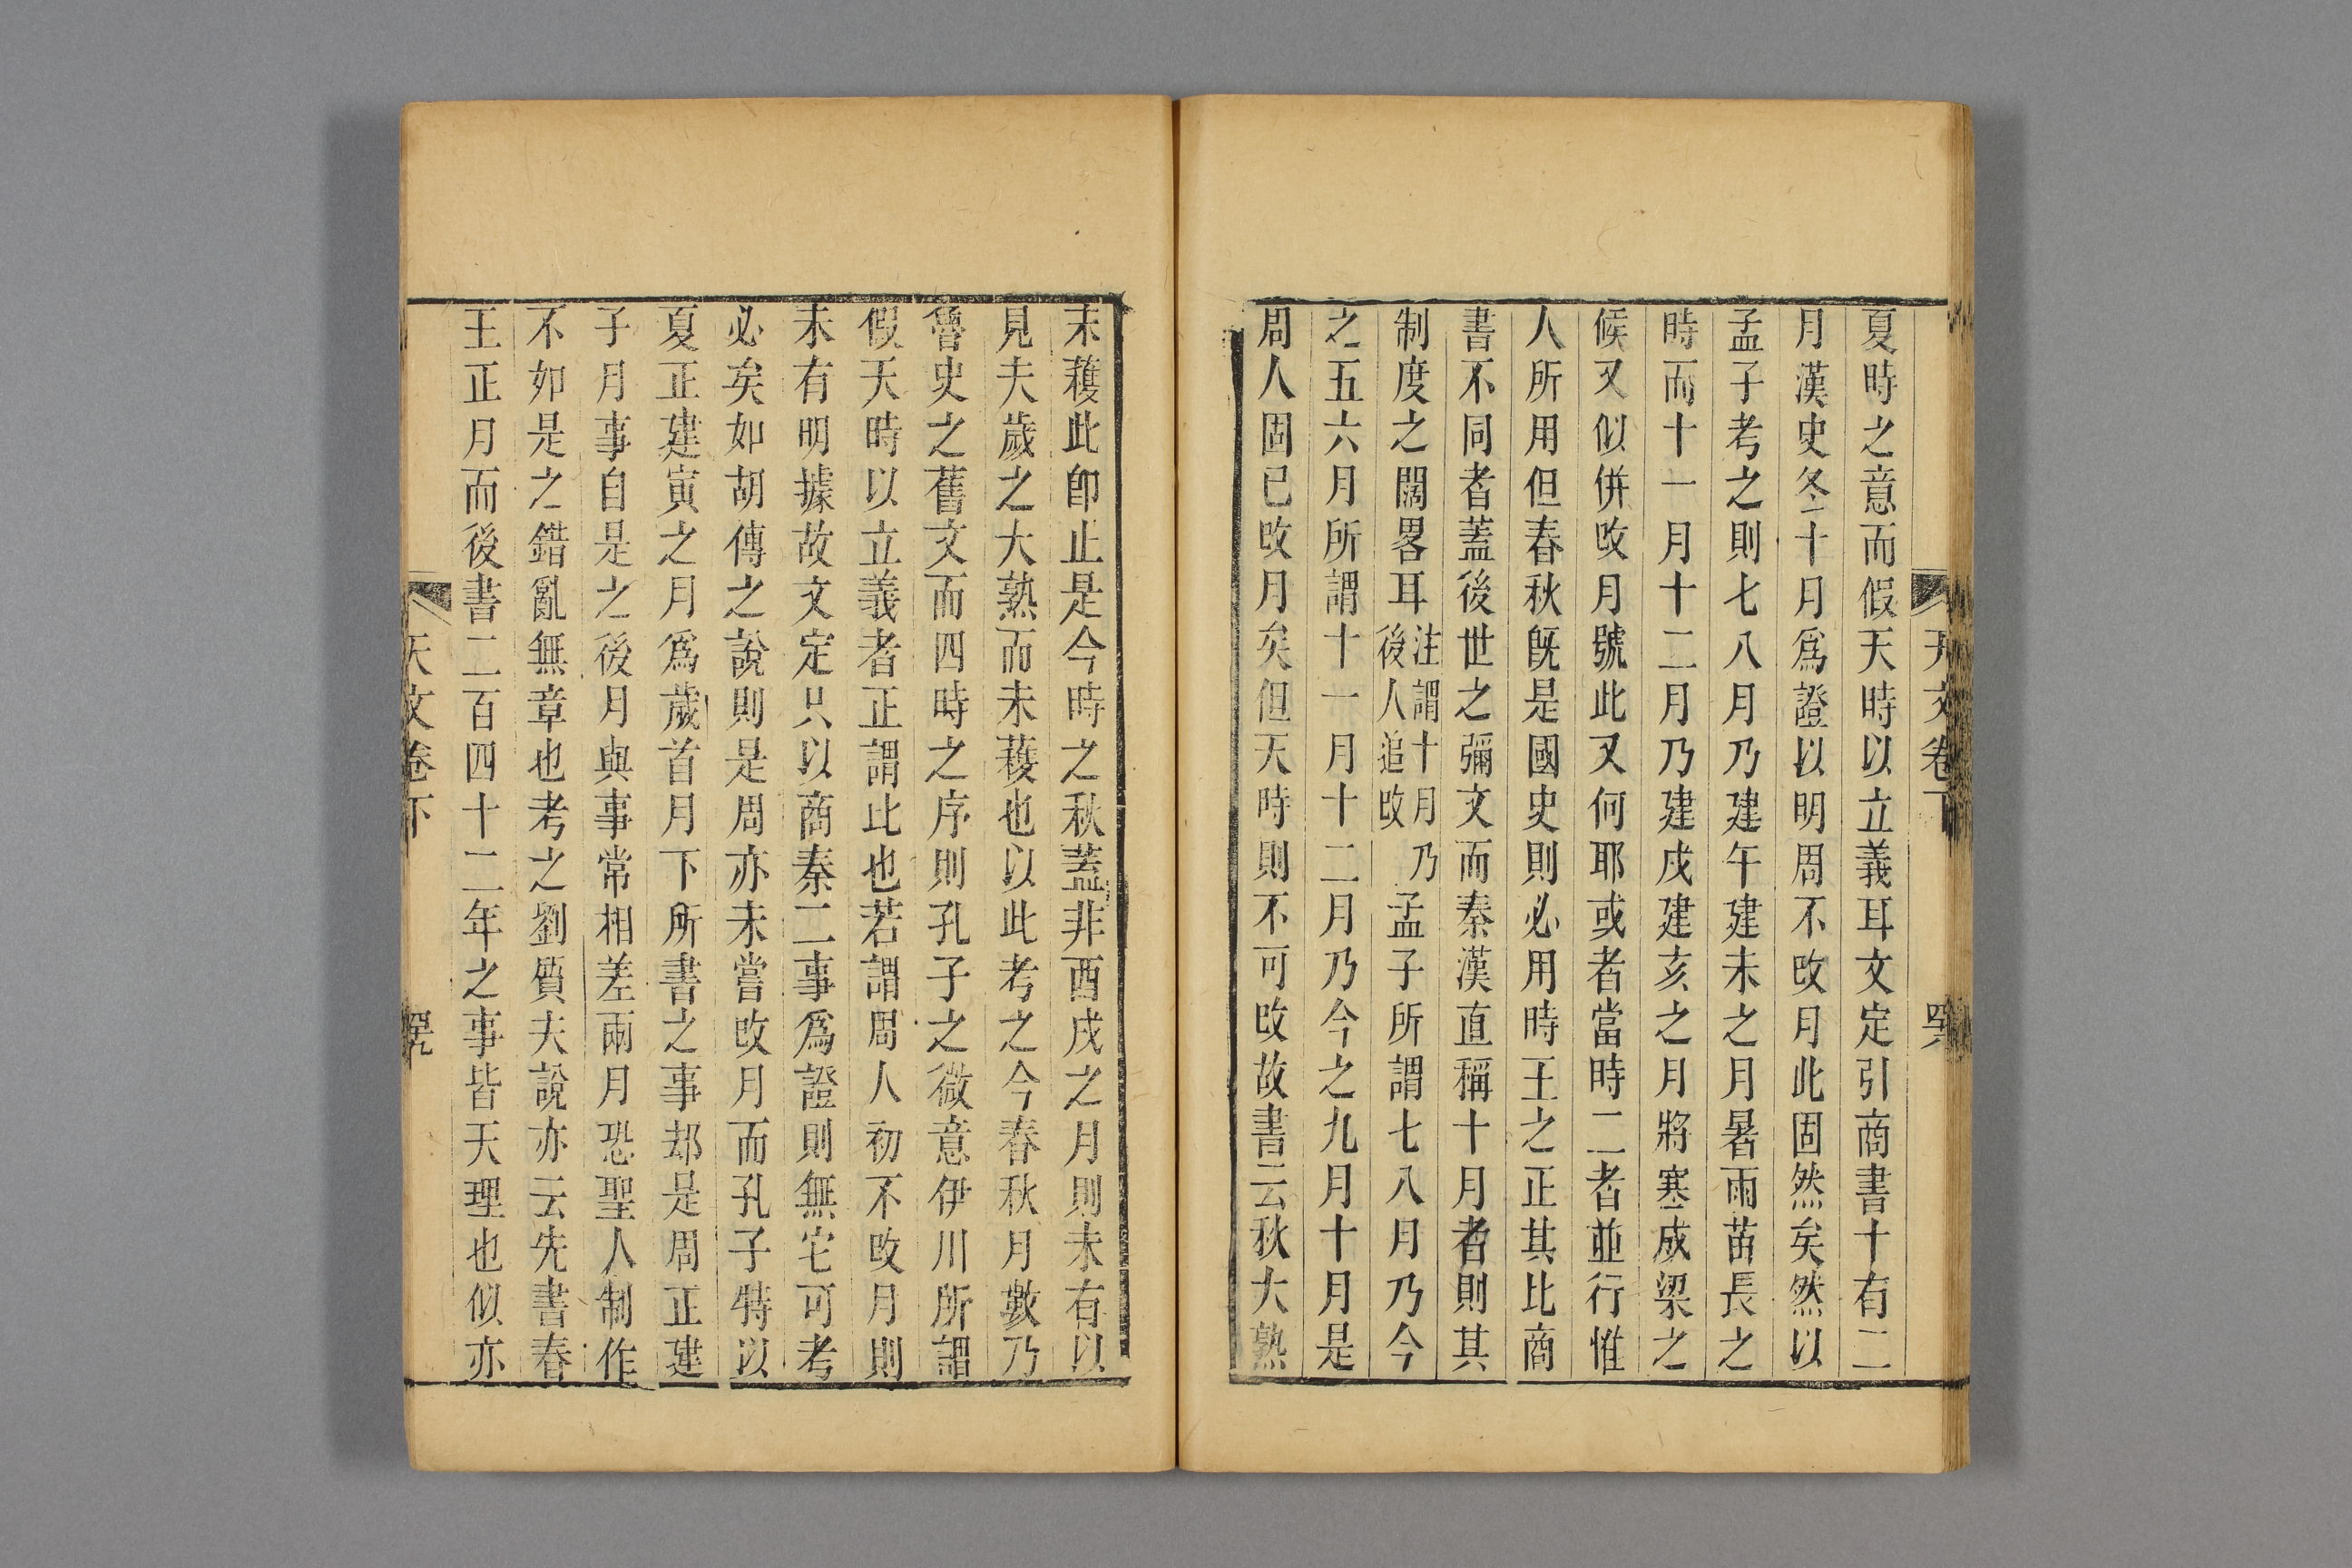 天文卷下
夏時之意而假天時以立義耳文定引商書十有二
月漢史冬十月爲證以明周不改月此固然矣然以
孟子考之則七八月乃建午建未之月暑雨苗長之
時而十一月十二月乃建戌建亥之月將寒成梁之
候又似併改月號此又何耶或者當時二者並行惟
人所用但春秋旣是國史則必用時王之正其比商
書不同者蓋後世之彌文而秦漢直稱十月者則其
制度之闊畧耳注謂十月乃後人追改孟子所謂七八月乃今
之五六月所謂十一月十二月乃今之九月十月是
周人固已改月矣但天時則不可改故書云秋大熟
未穫此卽止是今時之秋蓋非酉戌之月則未有以
見夫歲之大熟而未穫也以此考之今春秋月數乃
魯史之舊文而四時之序則孔子之微意伊川所謂
假天時以立義者正謂此也若謂周人初不改月則
未有明據故文定只以商秦二事爲證則無它可考
必矣如胡傳之說則是周亦未嘗改月而孔子特以
夏正建寅之月爲歲首月下所書之事却是周正建
子月事自是之後月與事常相差兩月恐聖人制作
不如是之錯亂無章也考之劉質夫說亦云先書春
王正月而後書二百四十二年之事皆天理也似亦
天文卷下